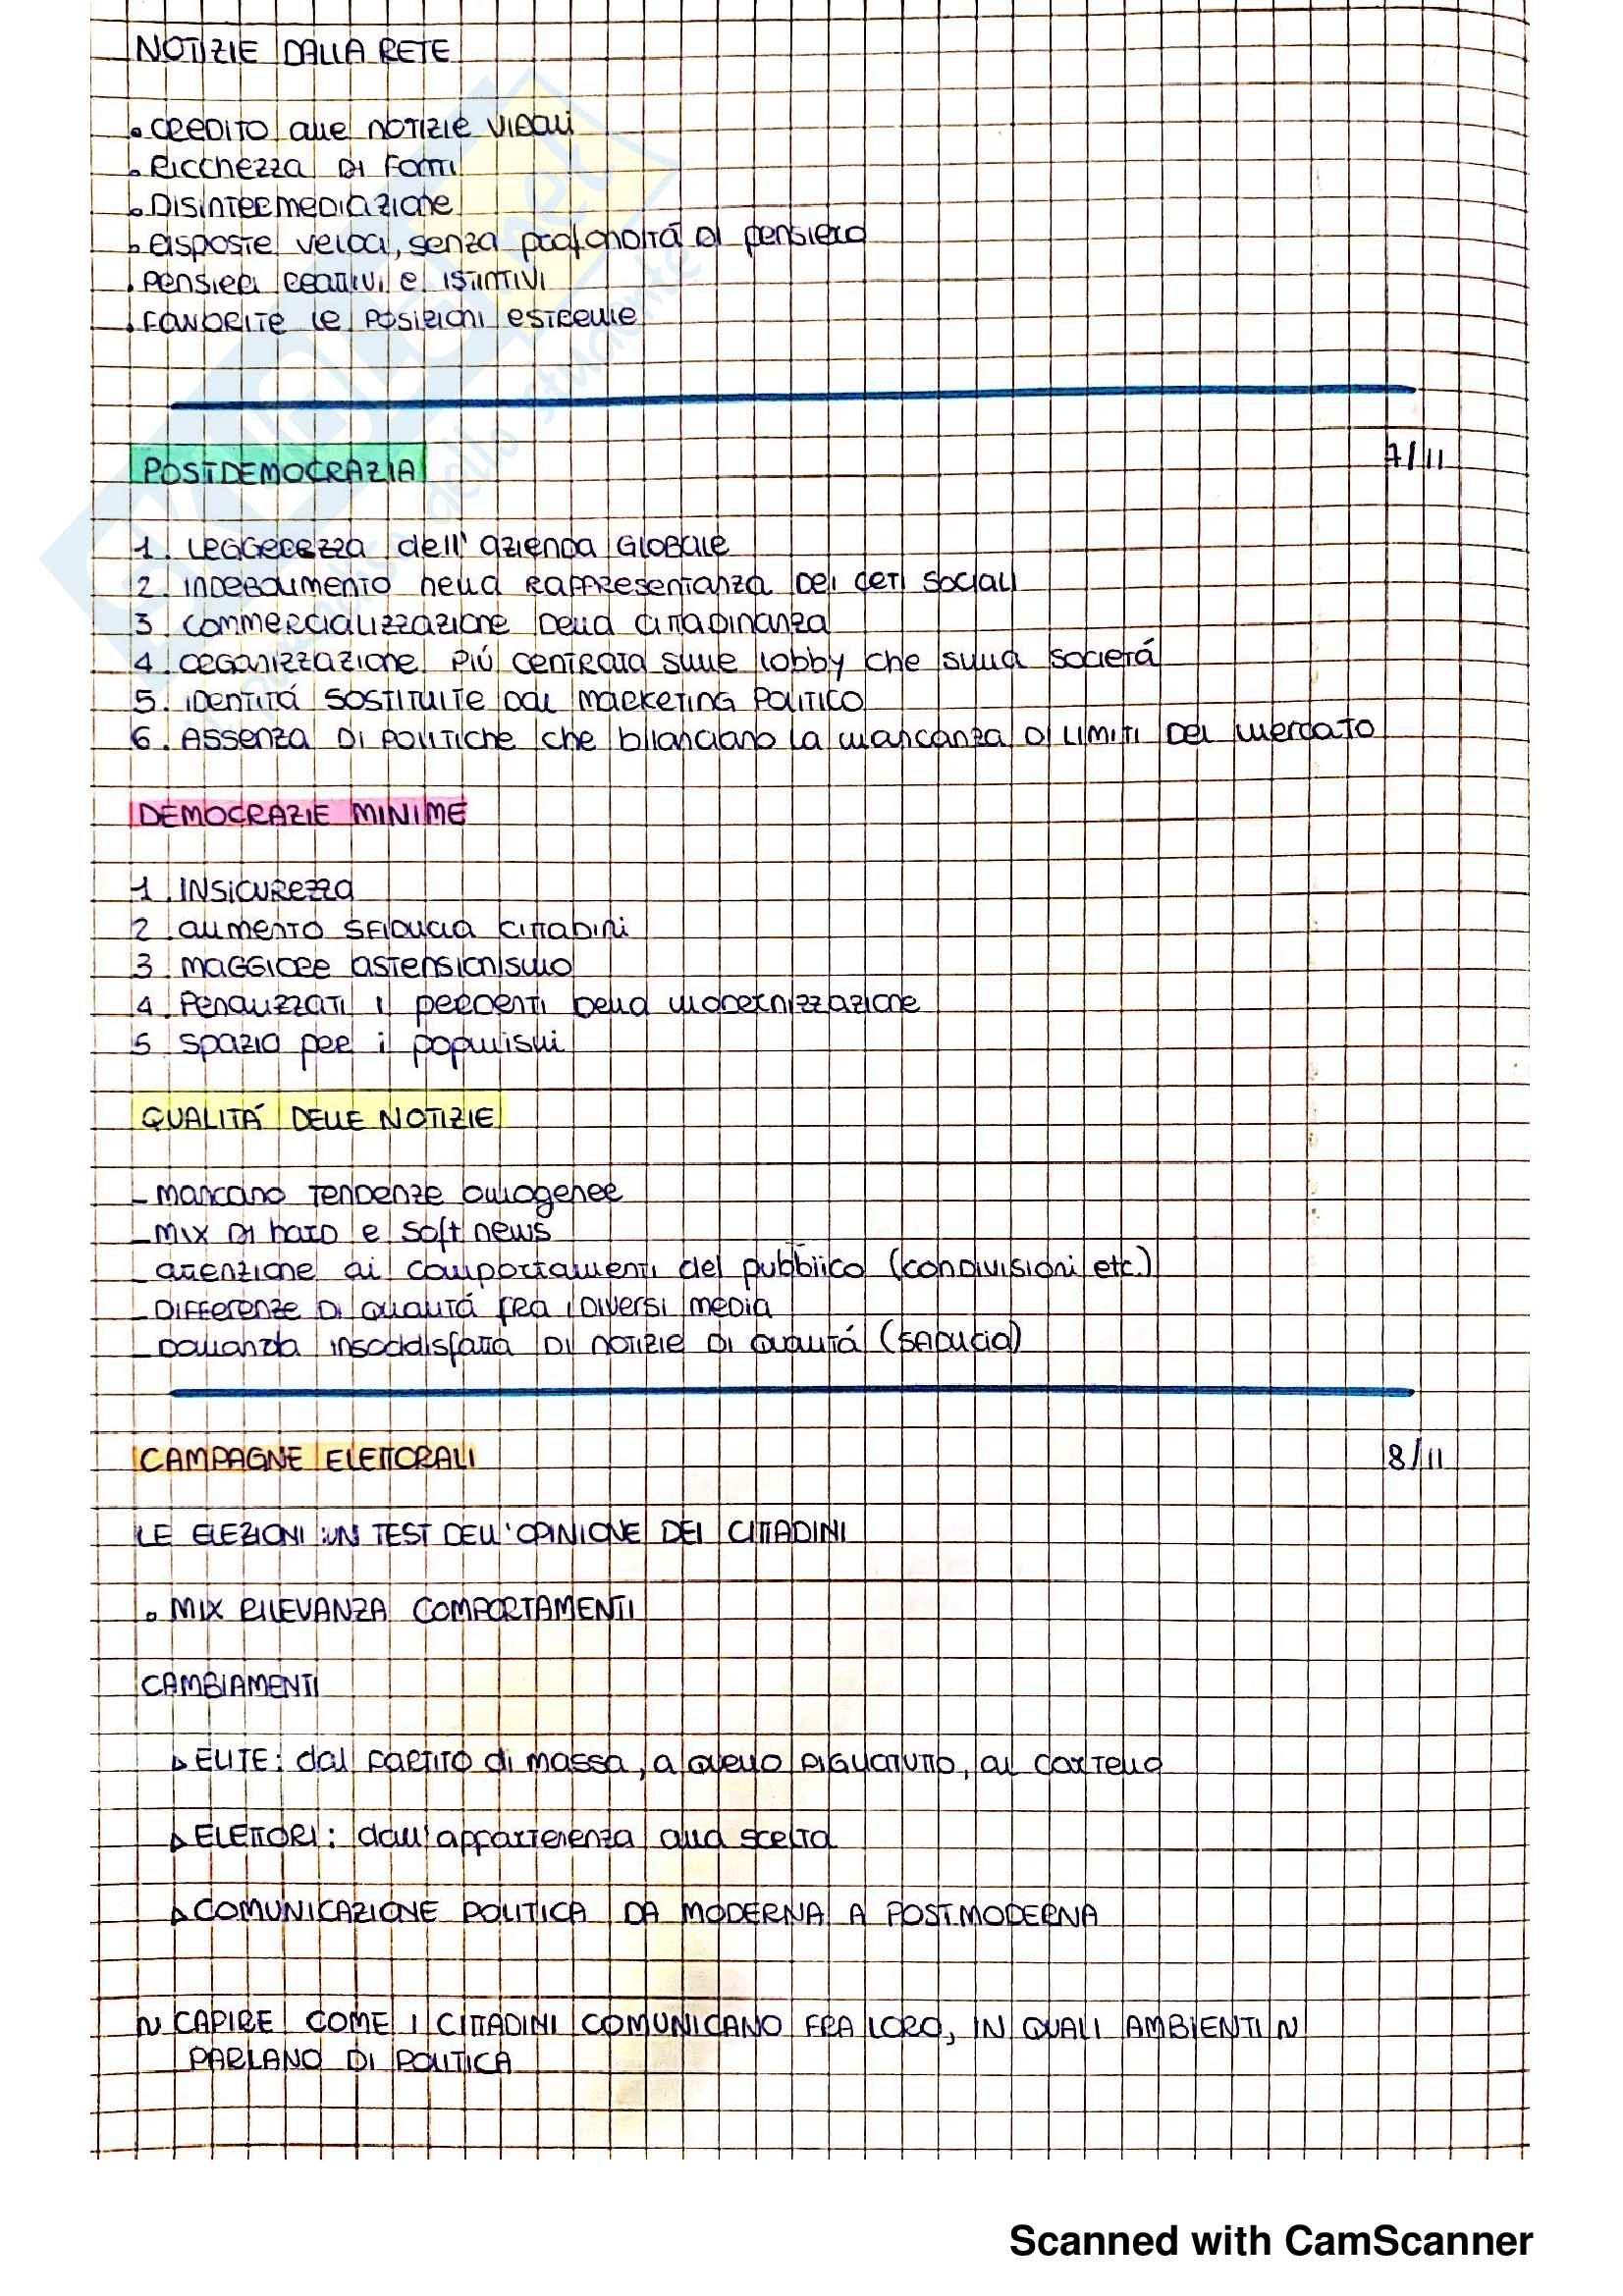 NOTIZIE DALLA RETE
• CREDITO alle NOTIZIE VIRALI
• RICCHEZZA DI FONTI
• DISINTERMEDIAZIONE
• RISPOSTE VELOCI, senza profonditá DI pensiero
• PENSIERI REATTIVI e ISTINTIVI
• FAVORITE le POSIZIONI ESTREME
POSTDEMOCRAZIA 7/11
1. LEGGEREZZA dell'azienda GLOBALE
2. INDEBOLIMENTO nella RAPPRESENTANZA DEI CETI SOCIALI
3. COMMERCIALIZZAZIONE DELLA CITTADINANZA
4. ORGANIZZAZIONE PIÚ CENTRATA sulle lobby che sulla societá
5. IDENTITÁ SOSTITUITE DAL MARKETING POLITICO
6. ASSENZA DI POLITICHE che bilanciano LA mancanza DI LIMITI DEL mercato
DEMOCRAZIE MINIME
1. INSICUREZZA
2. aumento SFIDUCIA CITTADINI
3. MAGGIORE ASTENSIONISMO
4. PENALIZZATI I PERDENTI DELLA MODERNIZZAZIONE
5 SPAZIO per i populismi
QUALITÁ DELLE NOTIZIE
- mancano TENDENZE omogenee
- MIX DI hard e soft news
- attenzione ai comportamenti del pubblico (condivisioni etc.)
- DIFFERENZE DI QUALITÁ FRA I DIVERSI MEDIA
- DOMANDA insoddisfatta DI NOTIZIE DI QUALITÁ (SFIDUCIA)
CAMPAGNE ELETTORALI 8/11
LE ELEZIONI: UN TEST DELL'OPINIONE DEI CITTADINI
• MIX RILEVANZA COMPORTAMENTI
CAMBIAMENTI
▷ ELITE: dal PARTITO di massa, a quello PIGLIATUTTO, al cartello
▷ ELETTORI: dall'appartenenza alla scelta
▷ COMUNICAZIONE POLITICA DA MODERNA A POSTMODERNA
~ CAPIRE COME I CITTADINI COMUNICANO FRA LORO, IN QUALI AMBIENTI ~
PARLANO DI POLITICA
Scanned with CamScanner